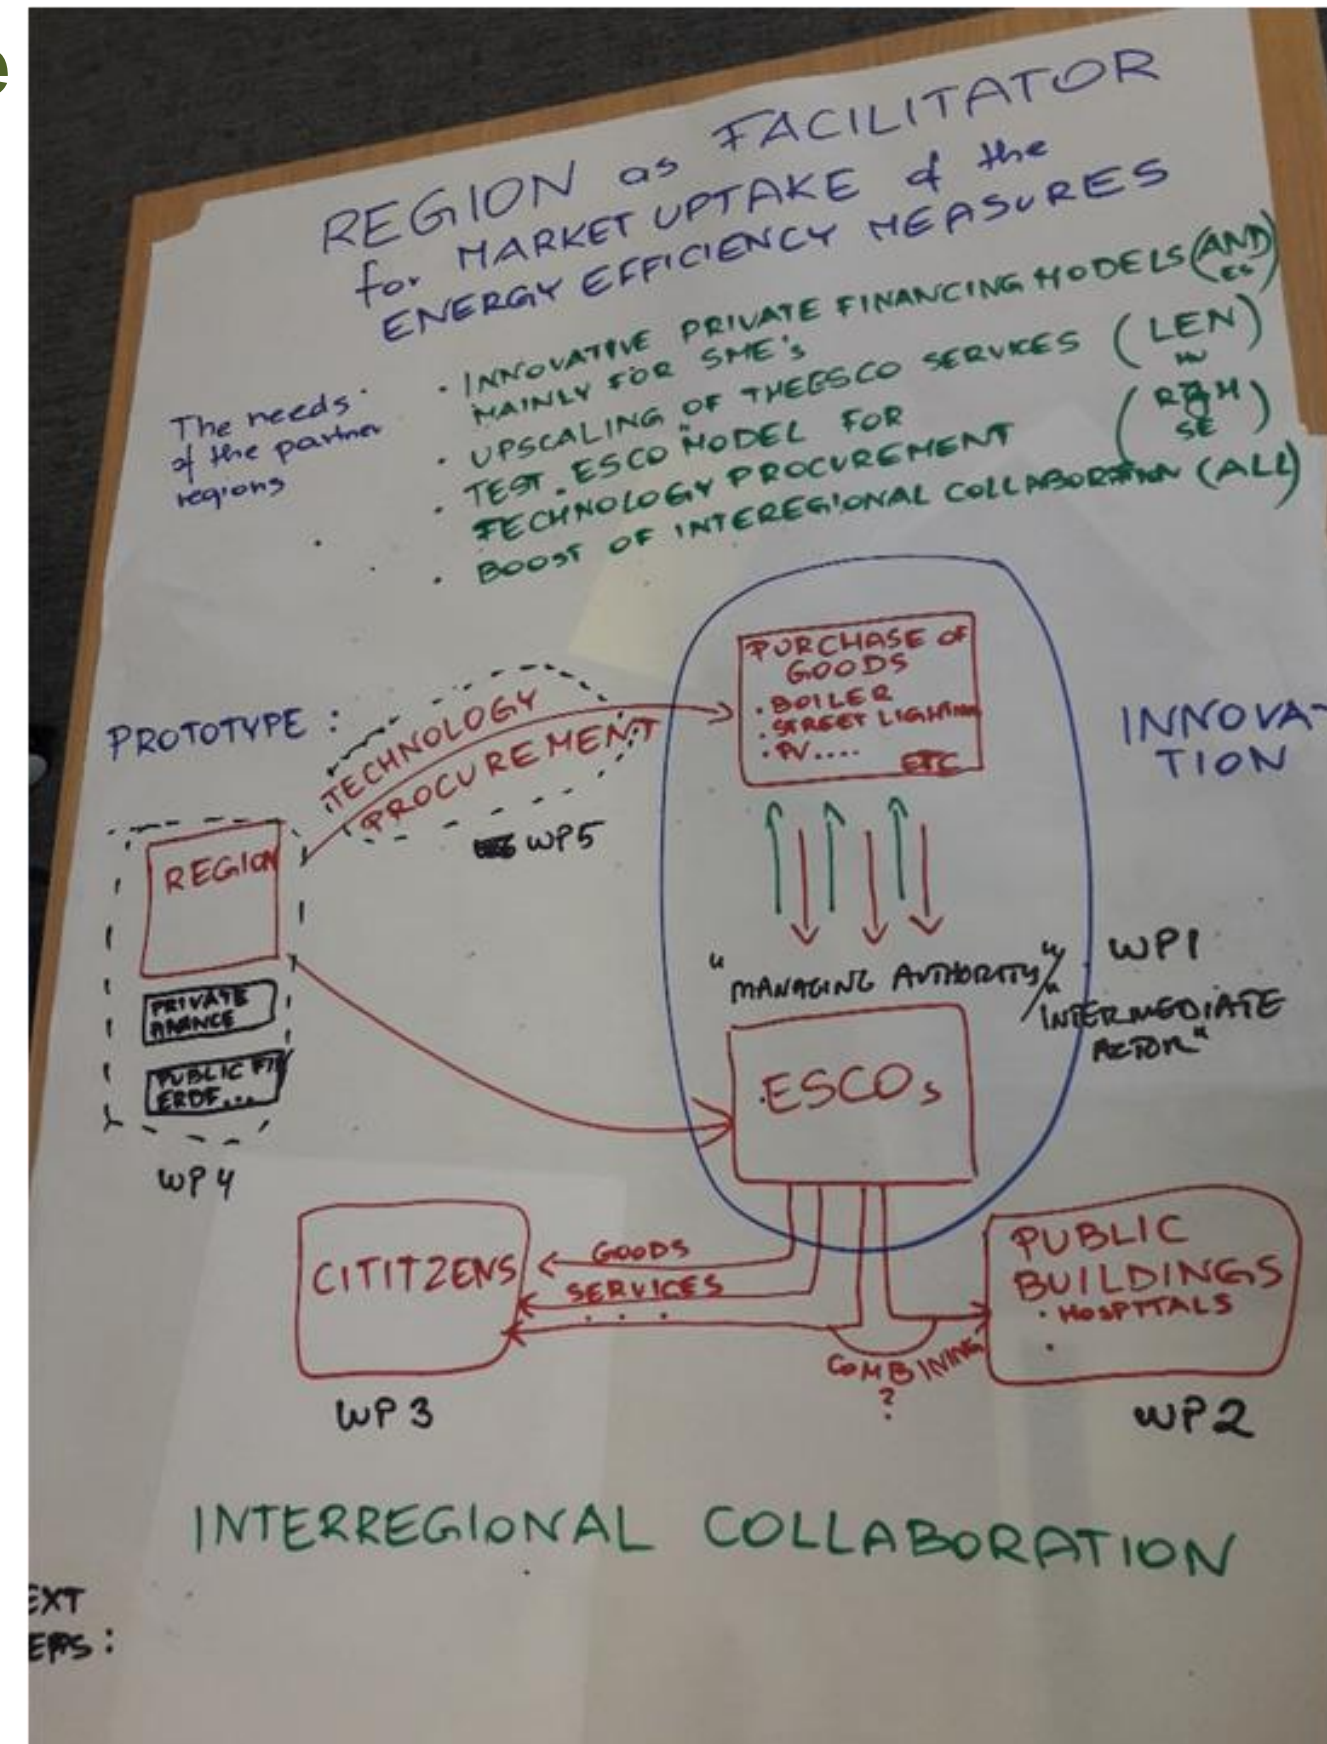 e
REGION as FACILITATOR
for MARKET UPTAKE of the
ENERGY EFFICIENCY MEASURES
The needs
of the partner
regions
· INNOVATIVE PRIVATE FINANCING MODELS (AND)
ES
MAINLY FOR SME's
· UPSCALING OF THE ESCO SERVICES (LEN)
· TEST ESCO MODEL FOR
SE
TECHNOLOGY PROCUREMENT
· BOOST OF INTEREGIONAL COLLABORATION (ALL)
PROTOTYPE :
TECHNOLOGY
PROCUREMENT
WP5
PURCHASE OF
GOODS
· BOILER
· STREET LIGHTING
· PV....
ETC
INNOVA-
TION
REGION
PRIVATE
FINANCE
PUBLIC FI
ERDF...
WP4
"MANAGING AUTHORITY"/
"INTERMEDIATE
ACTOR"
WP1
ESCOs
CITITZENS
GOODS
SERVICES
...
WP3
COMBINING
?
PUBLIC
BUILDINGS
· HOSPITALS
·
WP2
INTERREGIONAL COLLABORATION
EXT
EPS :